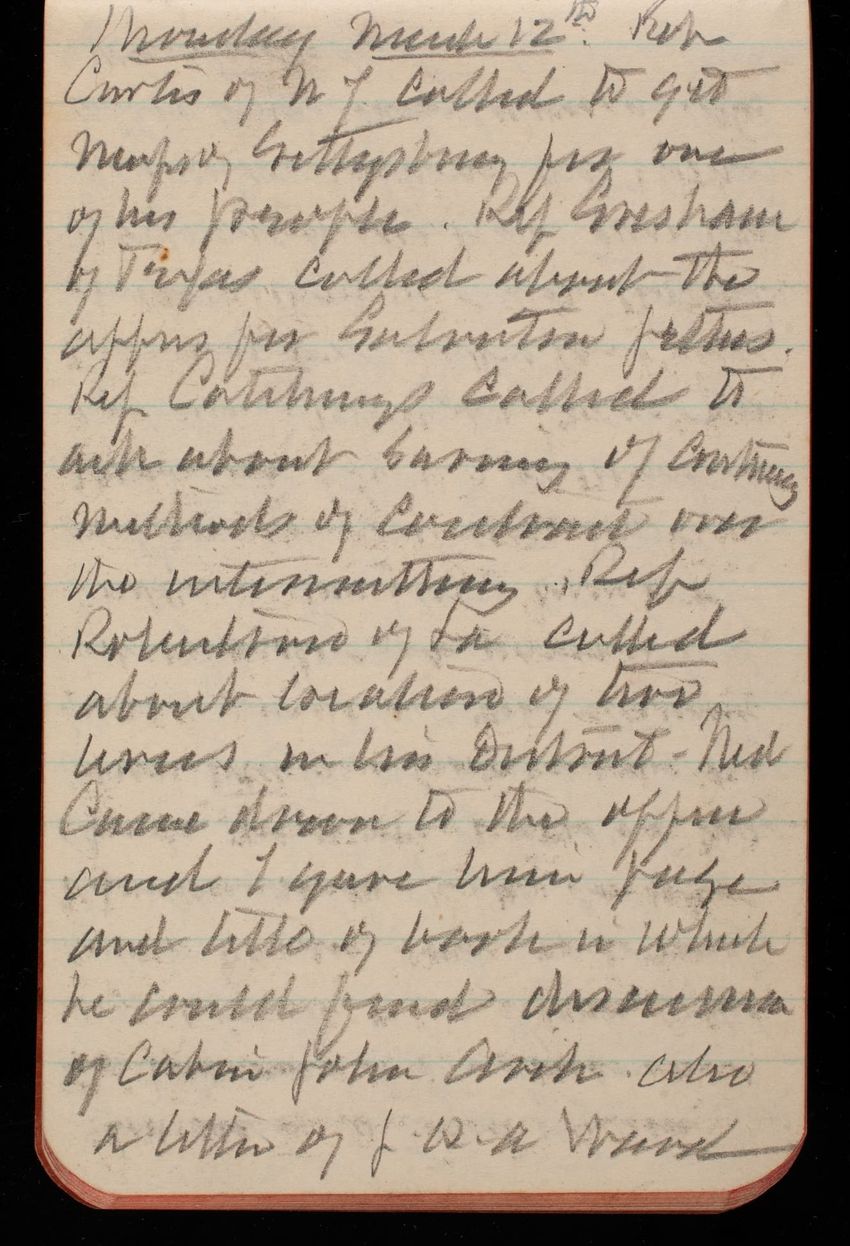 Monday March 12th. Rep
Curtis of N Y. called to get
Maps of Gettysburg for one
of his people. Rep Gresham
of Texas called about the
apprs for Galveston jetties.
Rep Catchings called to
ask about saving of continuing
methods of contract over
the intermitting. Rep
Robertson of La called
about location of two
levees in his District - Ned
Came down to the office
and I gave him page
and title of book in which
he could find discussion
of Cabin John Arch. also
a letter of J